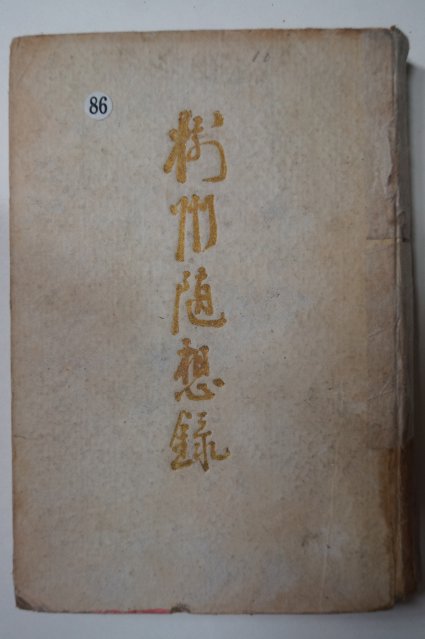 86
樹州随想錄